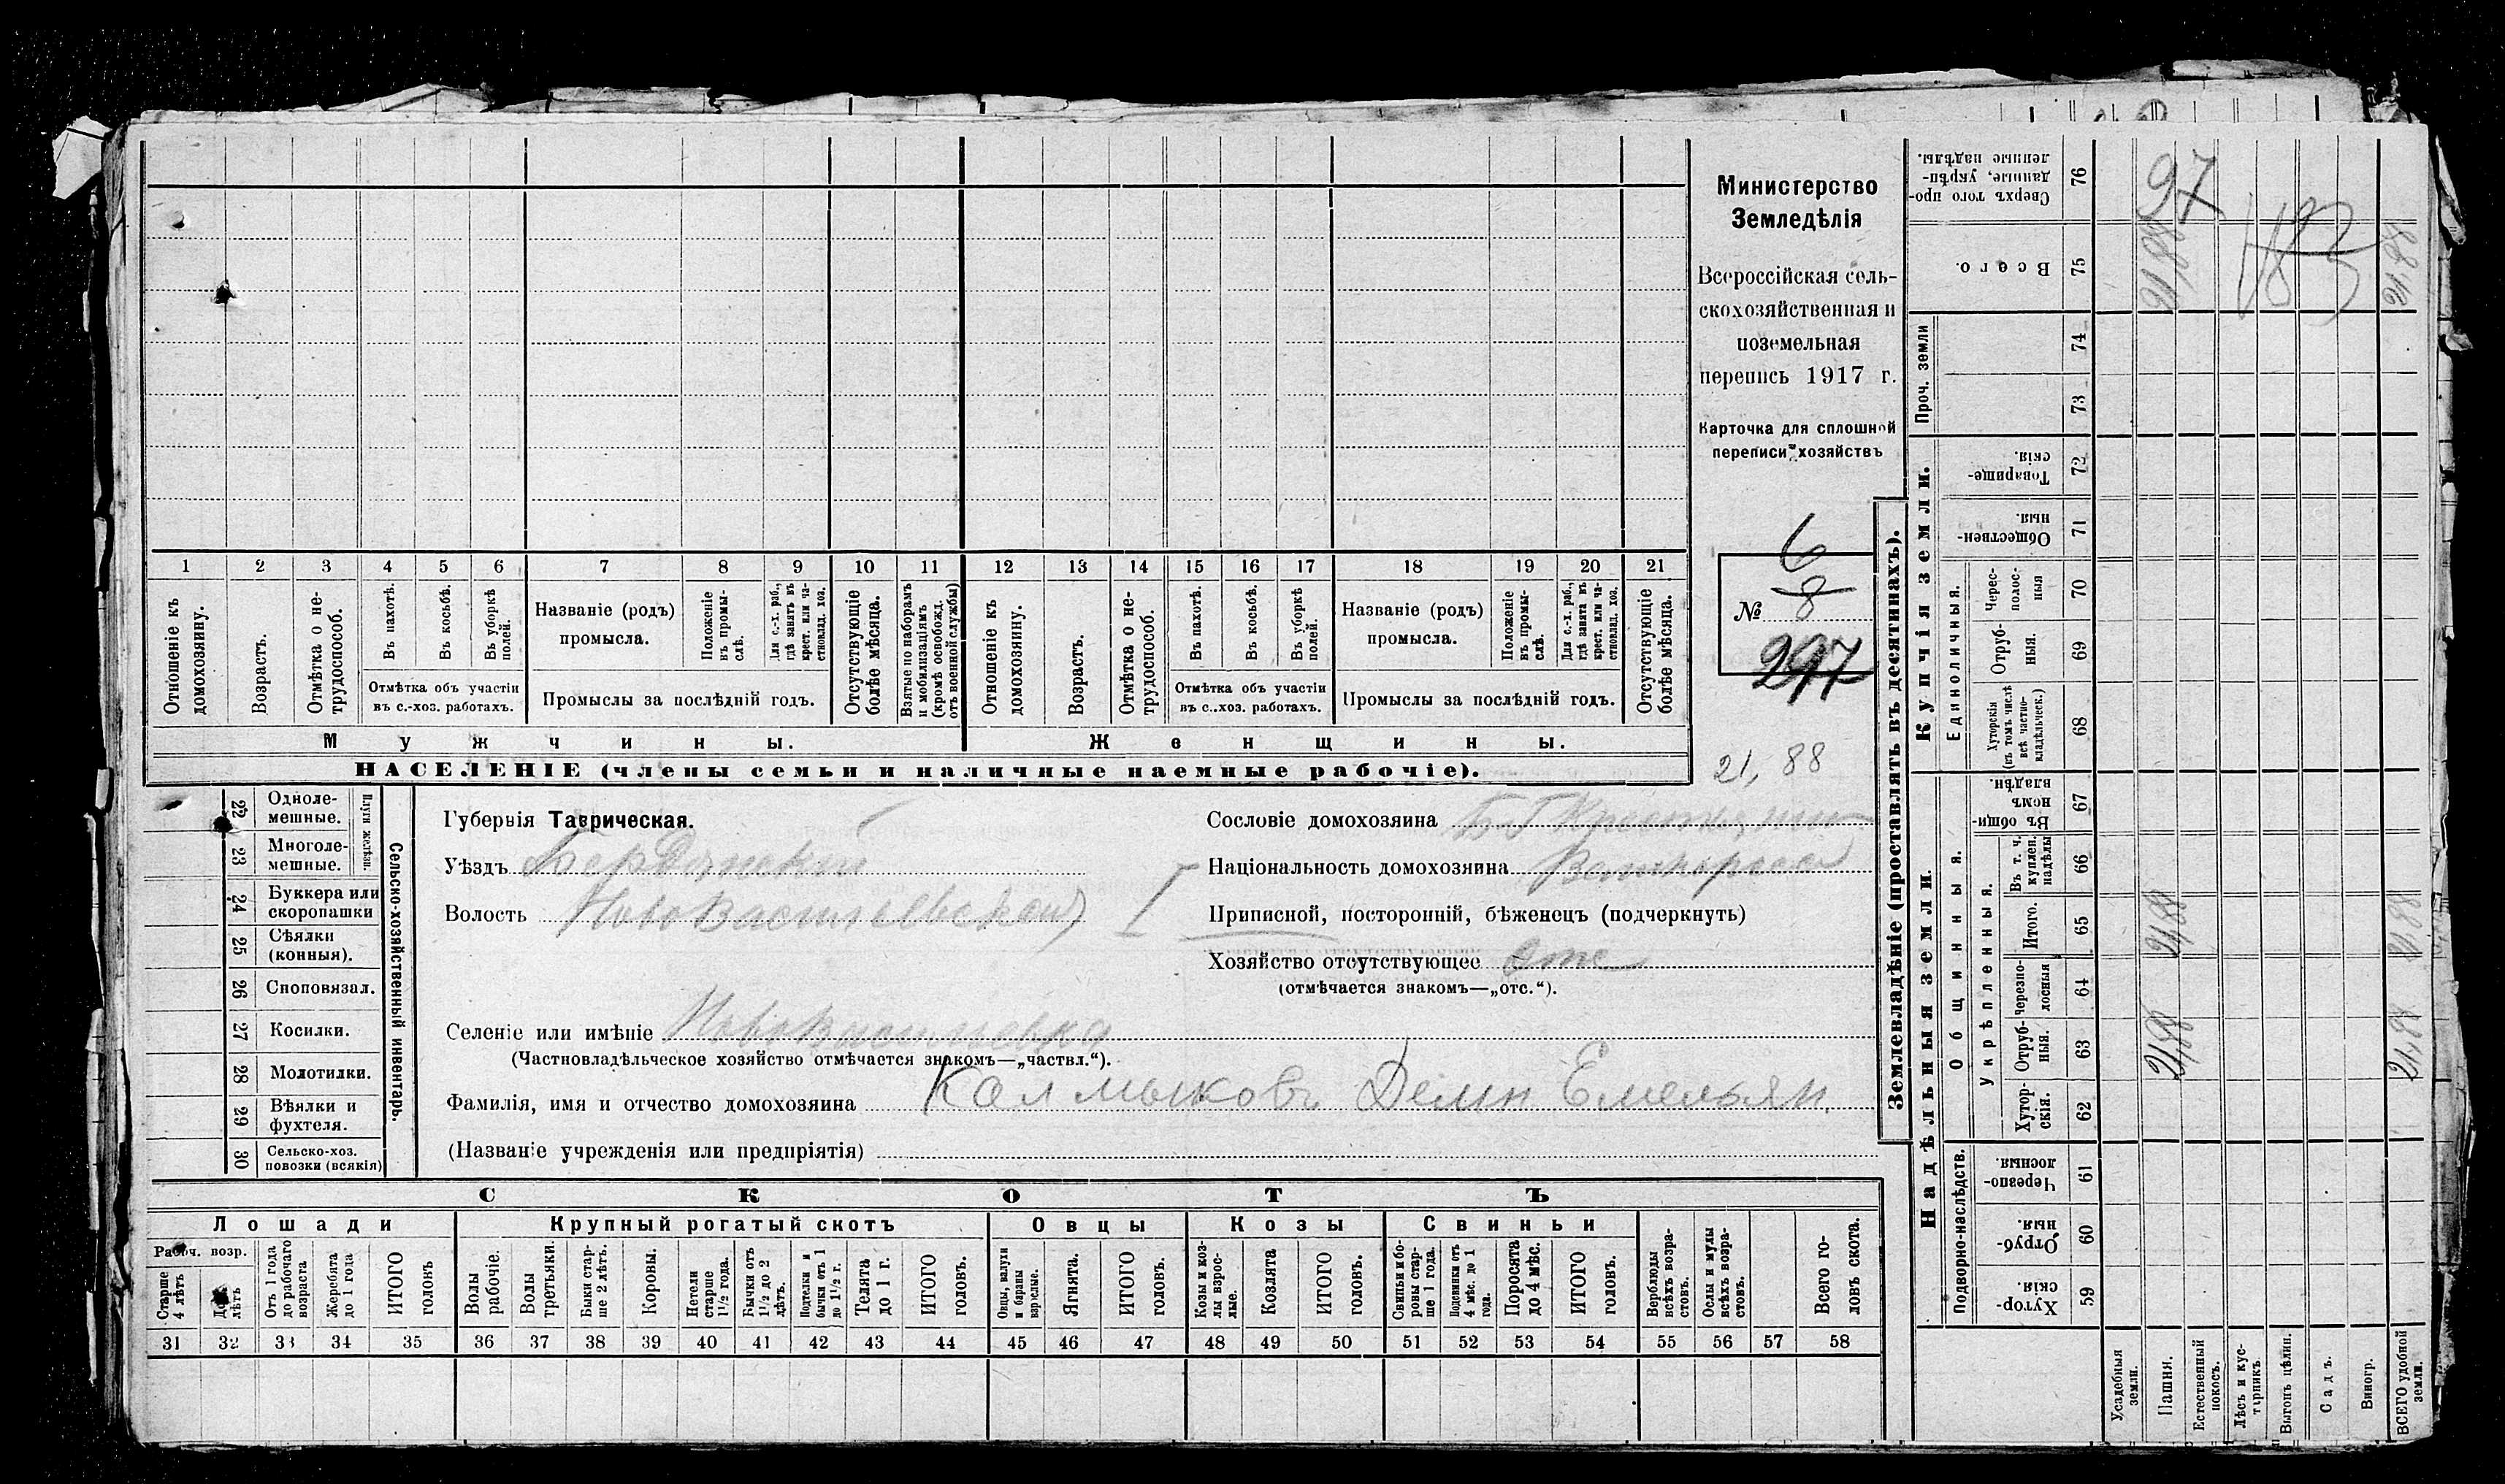 Министерство
Земледѣлія
Всероссійская сель-
скохозяйственная и
поземельная
перепись 1917 г.
Карточка для сплошной
переписи хозяйствъ
6
8
№
297
21,88
1 2 3 4 5 6 7 8 9 10 11 12 13 14 15 16 17 18 19 20 21
Отношеніе къ домохозяину.
Возрастъ.
Отмѣтка о не-трудоспособ.
Въ пахотѣ.
Въ косьбѣ.
Въ уборкѣ полей.
Отмѣтка объ участіи
въ с.-хоз. работахъ.
Названіе (родъ)
промысла.
Положеніе въ промы-слѣ.
Для с.-х. раб., гдѣ занятъ въ крест. или ча-стновлад. хоз.
Промыслы за послѣдній годъ.
Отсутствующіе болѣе мѣсяца.
Взятые по наборамъ и мобилизаціямъ (кромѣ освобожд. отъ военной службы)
Отношеніе къ домохозяину.
Возрастъ.
Отмѣтка о не-трудоспособ.
Въ пахотѣ.
Въ косьбѣ.
Въ уборкѣ полей.
Отмѣтка объ участіи
въ с..хоз. работахъ.
Названіе (родъ)
промысла.
Положеніе въ промы-слѣ.
Для с.-х. раб., гдѣ занята въ крест. или ча-стновлад. хоз.
Промыслы за послѣдній годъ.
Отсутствующіе болѣе мѣсяца.
Мужчины.
Женщины.
НАСЕЛЕНІЕ (члены семьи и наличные наемные рабочіе).
22 Однолемешные.
23 Многолемешные.
Плуги желѣзн.
24 Буккера или скоропашки
25 Сѣялки (конныя).
26 Сноповязал.
27 Косилки.
28 Молотилки.
29 Вѣялки и фухтеля.
30 Сельско-хоз. повозки (всякія)
Сельско-хозяйственный инвентарь.
Губернія Таврическая.
Уѣздъ Бердянскій
Волость НовоВасильевской I
Сословіе домохозяина
Національность домохозяина Великоросс
Приписной, посторонній, бѣженецъ (подчеркнуть)
Хозяйство отсутствующее Отс
(отмѣчается знакомъ—„отс.“).
Селеніе или имѣніе НовоВасильевка
(Частновладѣльческое хозяйство отмѣчается знакомъ—„частвл.“).
Фамилія, имя и отчество домохозяина Калмыковъ Демн Емельян.
(Названіе учрежденія или предпріятія)
СКОТЪ
Лошади
Крупный рогатый скотъ
Овцы
Козы
Свиньи
Рабоч. возр.
Старше 4 лѣтъ
До лѣтъ
Отъ 1 года до рабочаго возраста
Жеребята до 1 года
ИТОГО головъ
Волы рабочіе.
Волы третьяки.
Быки стар-ше 2 лѣтъ.
Коровы.
Нетели старше 1½ года.
Бычки отъ 1½ до 2 лѣтъ.
Подтелки и бычки отъ 1 до 1½ г.
Телята до 1 г.
ИТОГО головъ.
Овцы, валухи и бараны взрослые.
Ягнята.
ИТОГО головъ.
Козы и коз-лы взрос-лые.
Козлята
ИТОГО головъ.
Свиньи и бо-ровы стар-ше 1 года.
Подсвинки отъ 4 мѣс. до 1 года.
Поросята до 4 мѣс.
ИТОГО головъ.
Верблюды всѣхъ возра-стовъ.
Ослы и мулы всѣхъ возра-стовъ.
Всего го-ловъ скота.
31 32 33 34 35 36 37 38 39 40 41 42 43 44 45 46 47 48 49 50 51 52 53 54 55 56 57 58
Землевладѣніе (проставлять въ десятинахъ).
Купчія земли.
Надѣльныя земли.
Проч. земли
Единоличныя.
Общинныя.
Укрѣпленныя.
Подворно-наслѣдств.
76 Сверхъ того про-данные, укрѣп-ленные надѣлы.
75 Всего.
74
73
72 Товарище-скія.
71 Обществен-ныя.
70 Черес-полос-ныя
69 Отруб-ныя.
68 Хуторскія (въ томъ числѣ всѣ частно-владѣльческ.)
67 Въ общин-номъ владѣн.
66 Въ т. ч. куплен. надѣлы
65 Итого.
64 Черезпо-лосныя
63 Отруб-ныя.
62 Хутор-скія.
61 Черезпо-лосныя.
60 Отруб-ныя.
59 Хутор-скія.
Усадебныя земли.
Пашня.
Естественный покосъ.
Лѣсъ и кус-тарникъ.
Выгонъ цѣлин.
Садъ.
Виногр.
ВСЕГО удобной земли.
97
21,88
21,88
21,88
21,88
21,88
21,88